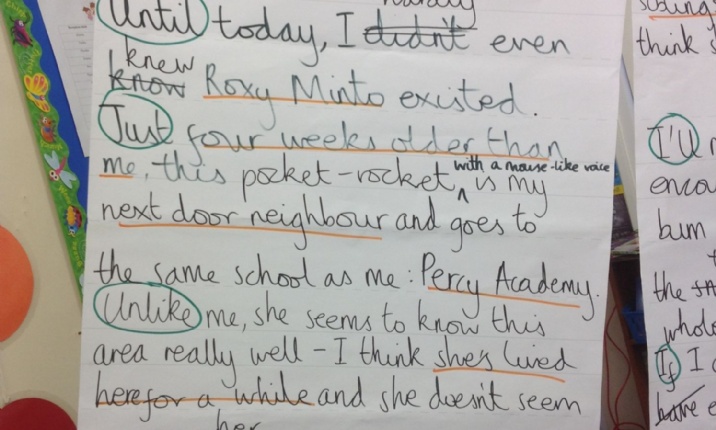 hardly
Until today, I didn't even
knew
know Roxy Minto existed.
Just four weeks older than
with a mouse-like voice
me, this pocket-rocket, ^ is my
next door neighbour and goes to
the same school as me: Percy Academy.
Unlike me, she seems to know this
area really well – I think she's lived
here for a while and she doesn't seem
her
think
I'll
bum
the
If I
have